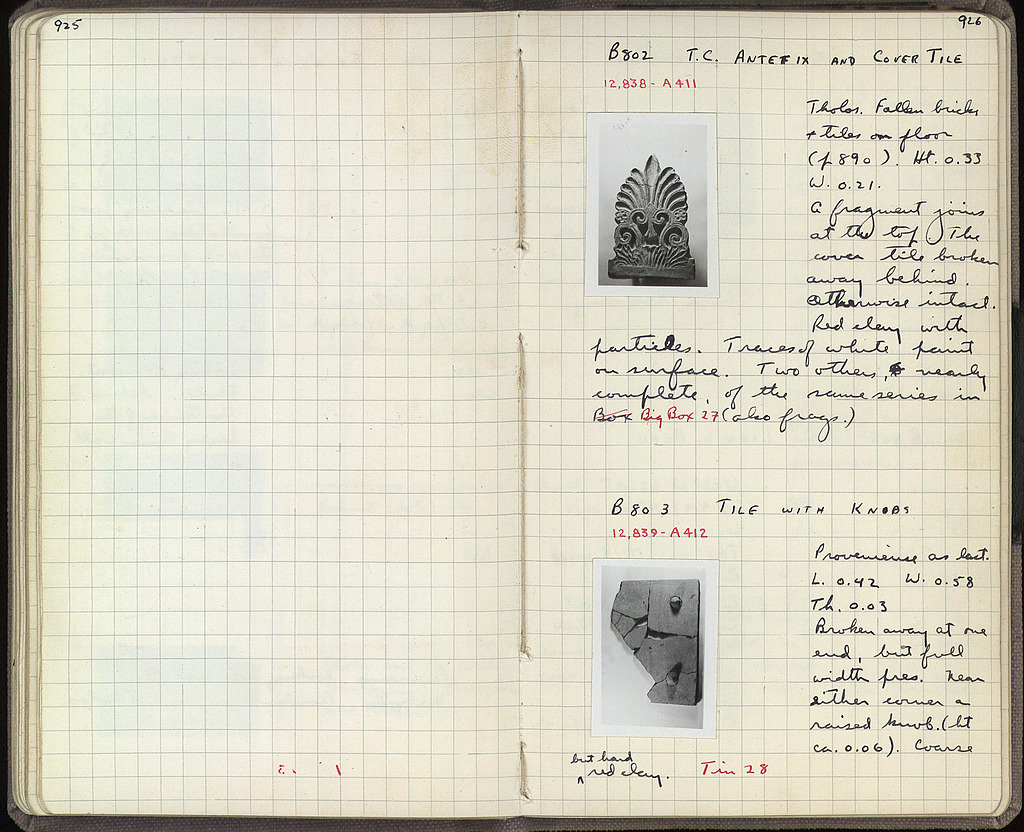 925
926
B802 T.C. ANTEFIX AND COVER TILE
12,838 - A411
Tholos. Fallen bricks
+ tiles on floor
(p 890). Ht. 0.33
W. 0.21.
A fragment joins
at the top. The
cover tile broken
away behind.
Otherwise intact.
Red clay with
particles. Traces of white paint
on surface. Two others, nearly
complete, of the same series in
Box Big Box 27 (also frags.)
B803 TILE WITH KNOBS
12,839 - A412
Provenience as last.
L. 0.42 W. 0.58
Th. 0.03
Broken away at one
end, but full
width pres. Near
either corner a
raised knob. (ht
ca. 0.06). Coarse
but hard
^ red clay. Tin 28